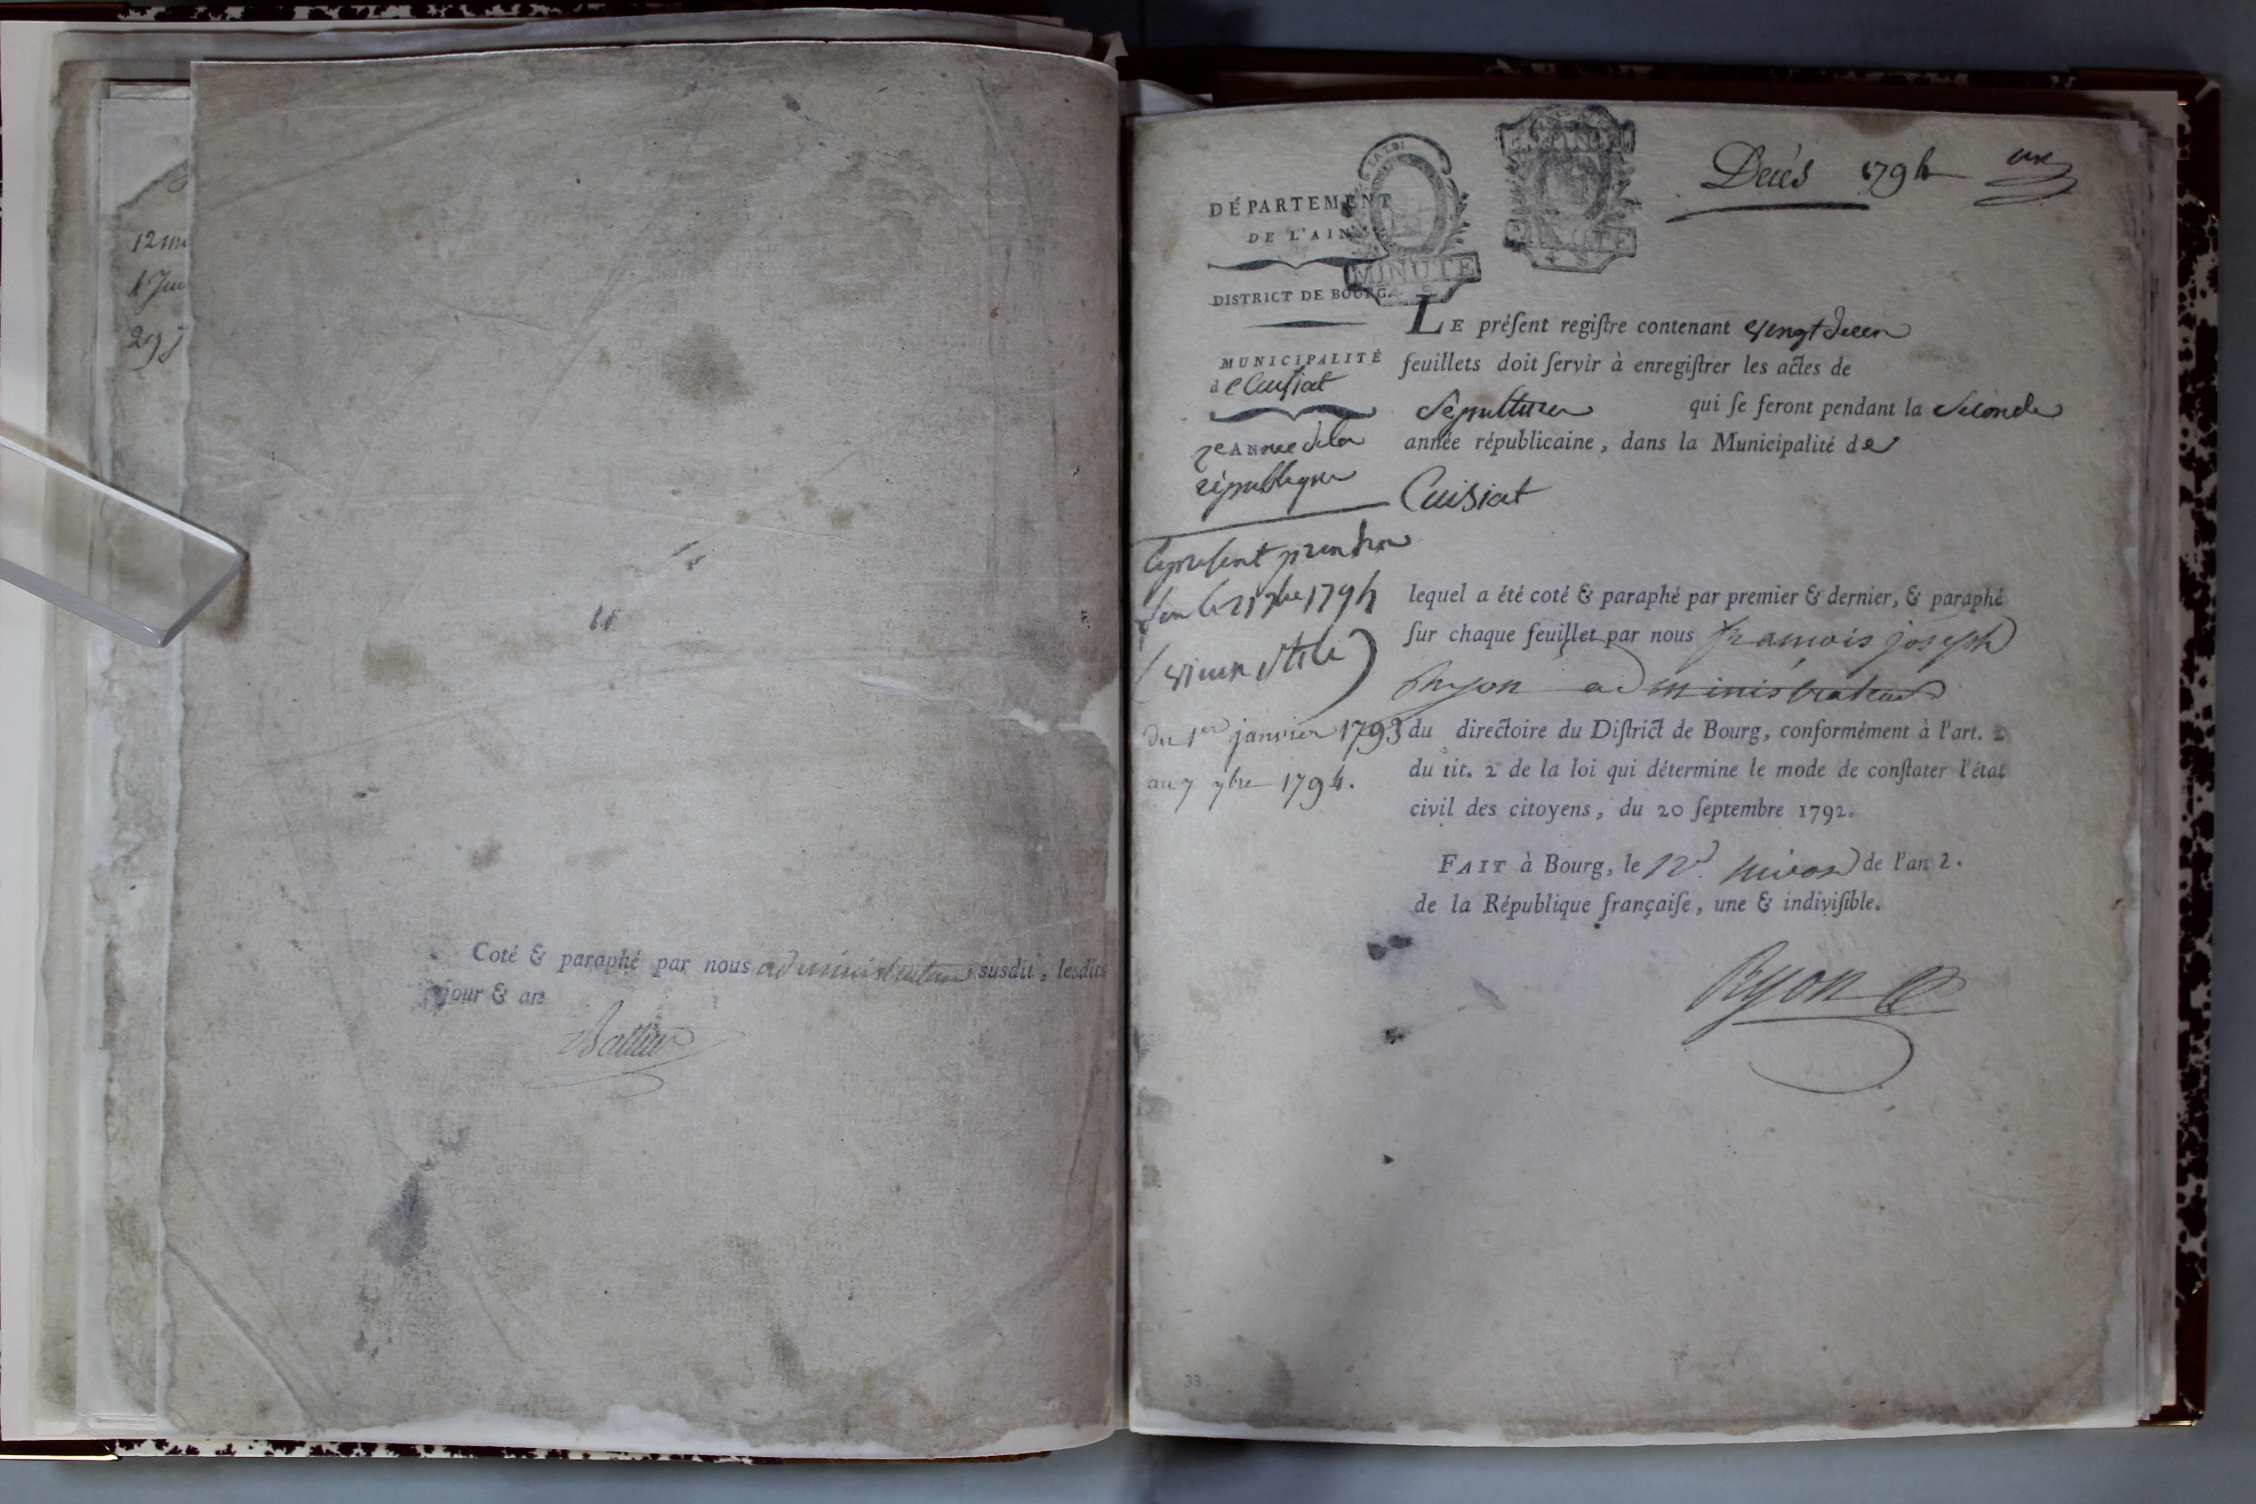 12
29 j
Coté & paraphé par nous administrateur susdit, lesdits
jour & an
Décés 1794 une
LA LOI
MINUTE
MINUTE
DÉPARTEMENT
DE L'AIN
DISTRICT DE BOURG.
MUNICIPALITÉ
de Cuisiat
2e ANnée de la
république
le présent prendra
fin le 21 7bre 1794
(vieux stile)
du 1er janvier 1793
au 7 9bre 1794.
LE préſent regiſtre contenant vingt deux
feuillets doit ſervir à enregiſtrer les actes de
Sépultures qui ſe feront pendant la seconde
année républicaine, dans la Municipalité de
Cuisiat
lequel a été coté & paraphé par premier & dernier, & paraphé
ſur chaque feuillet par nous françois joseph
Ryon administrateur
du directoire du Diſtrict de Bourg, conformément à l'art. 2
du tit. 2 de la loi qui détermine le mode de conſtater l'état
civil des citoyens, du 20 ſeptembre 1792.
FAIT à Bourg, le 12 nivose de l'an 2.
de la République françaiſe, une & indiviſible.
Ryon
33